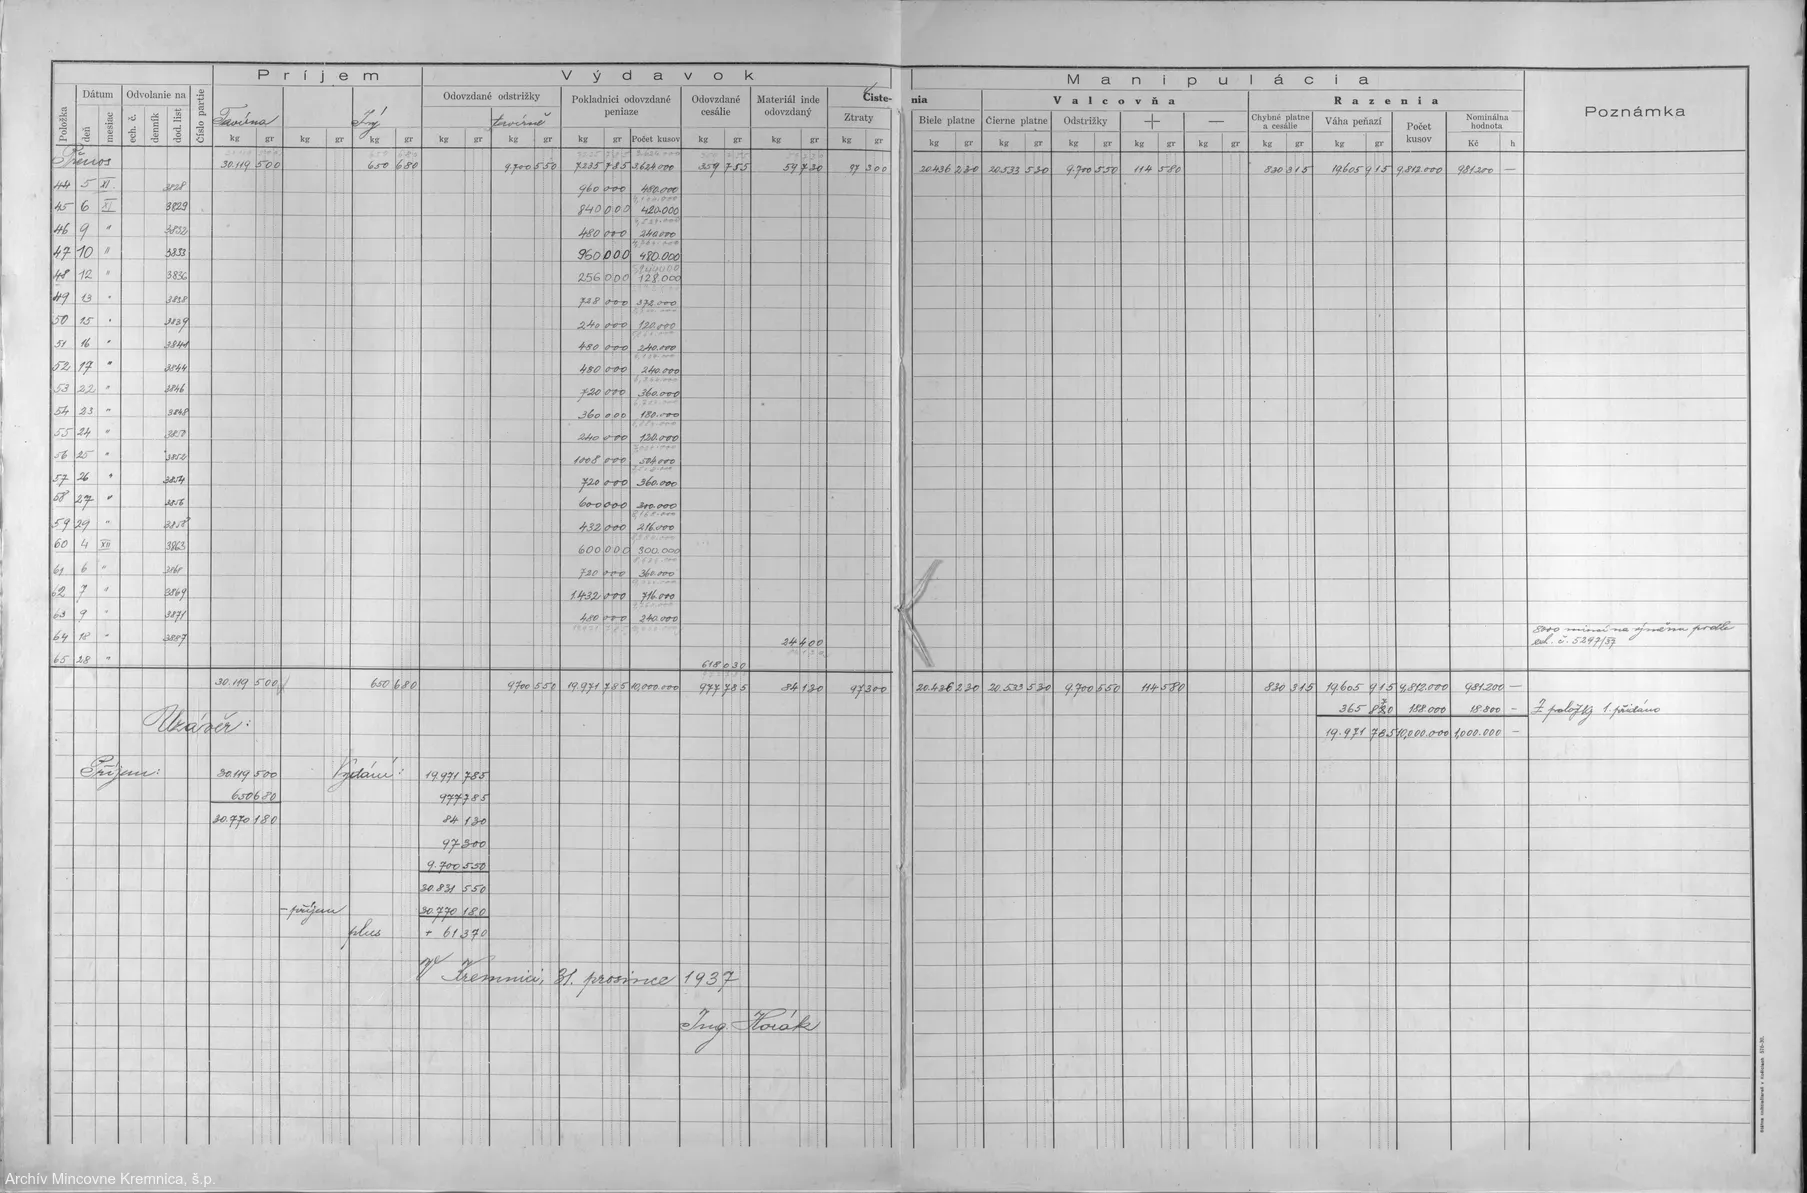 Príjem Výdavok Manipulácia
Položka Dátum Odvolanie na Číslo partie Odovzdané odstrižky Pokladnici odovzdané peniaze Odovzdané cesálie Materiál inde odovzdaný Čiste-nia Valcovňa Razenia Poznámka
deň mesiac ech. č. denník dod. list Tavírna Iný tavírně Počet kusov Ztraty Biele platne Čierne platne Odstrižky + — Chybné platne a cesálie Váha peňazí Počet kusov Nominálna hodnota
kg gr kg gr kg gr kg gr kg gr kg gr kg gr kg gr kg gr kg gr kg gr kg gr kg gr kg gr kg gr kg gr kg gr Kč h
Přenos 30.119 500 650 680 9.700 550 7235 785 3624.000 359 755 59 730 97 300 20.436 230 20.533 530 9.700 550 114 580 830 315 19.605 915 9,812.000 981.200 —
44 5 XI. 3828 960 000 480.000
45 6 XI 3829 840 000 420.000
46 9 " 3832 480 000 240.000
47 10 " 3833 960 000 480.000
48 12 " 3836 256 000 128.000
49 13 " 3838 728 000 372.000
50 15 " 3839 240 000 120.000
51 16 " 3841 480 000 240.000
52 17 " 3844 480 000 240.000
53 22 " 3846 720 000 360.000
54 23 " 3848 360 000 180.000
55 24 " 3850 240 000 120.000
56 25 " 3852 1008 000 504.000
57 26 " 3854 720 000 360.000
58 27 " 3856 600 000 300.000
59 29 " 3858 432 000 216.000
60 4 XII 3863 600 000 300.000
61 6 " 3868 720 000 360.000
62 7 " 3869 1432 000 716.000
63 9 " 3871 480 000 240.000
64 18 " 3887 24 400 8000 mincí na výměnu podle
ech. č. 5297/37
65 28 " 618 030
30.119 500 650 680 9700 550 19.971 785 10,000.000 977 785 84 130 97 300 20.436 230 20.533 530 9.700 550 114 580 830 315 19.605 915 9,812.000 981.200 —
365 870 188.000 18.800 — Z položky 1 přidáno
Uzávěr: 19.971 785 10,000.000 1,000.000 —
Příjem: 30.119 500 Vydání: 19.971 785
650 680 977 785
30.770 180 84 130
97 300
9.700 550
30.831 550
– příjem 30.770 180
plus + 61 370
V Kremnici, 31. prosince 1937
Ing. Horák
Archív Mincovne Kremnica, š.p.